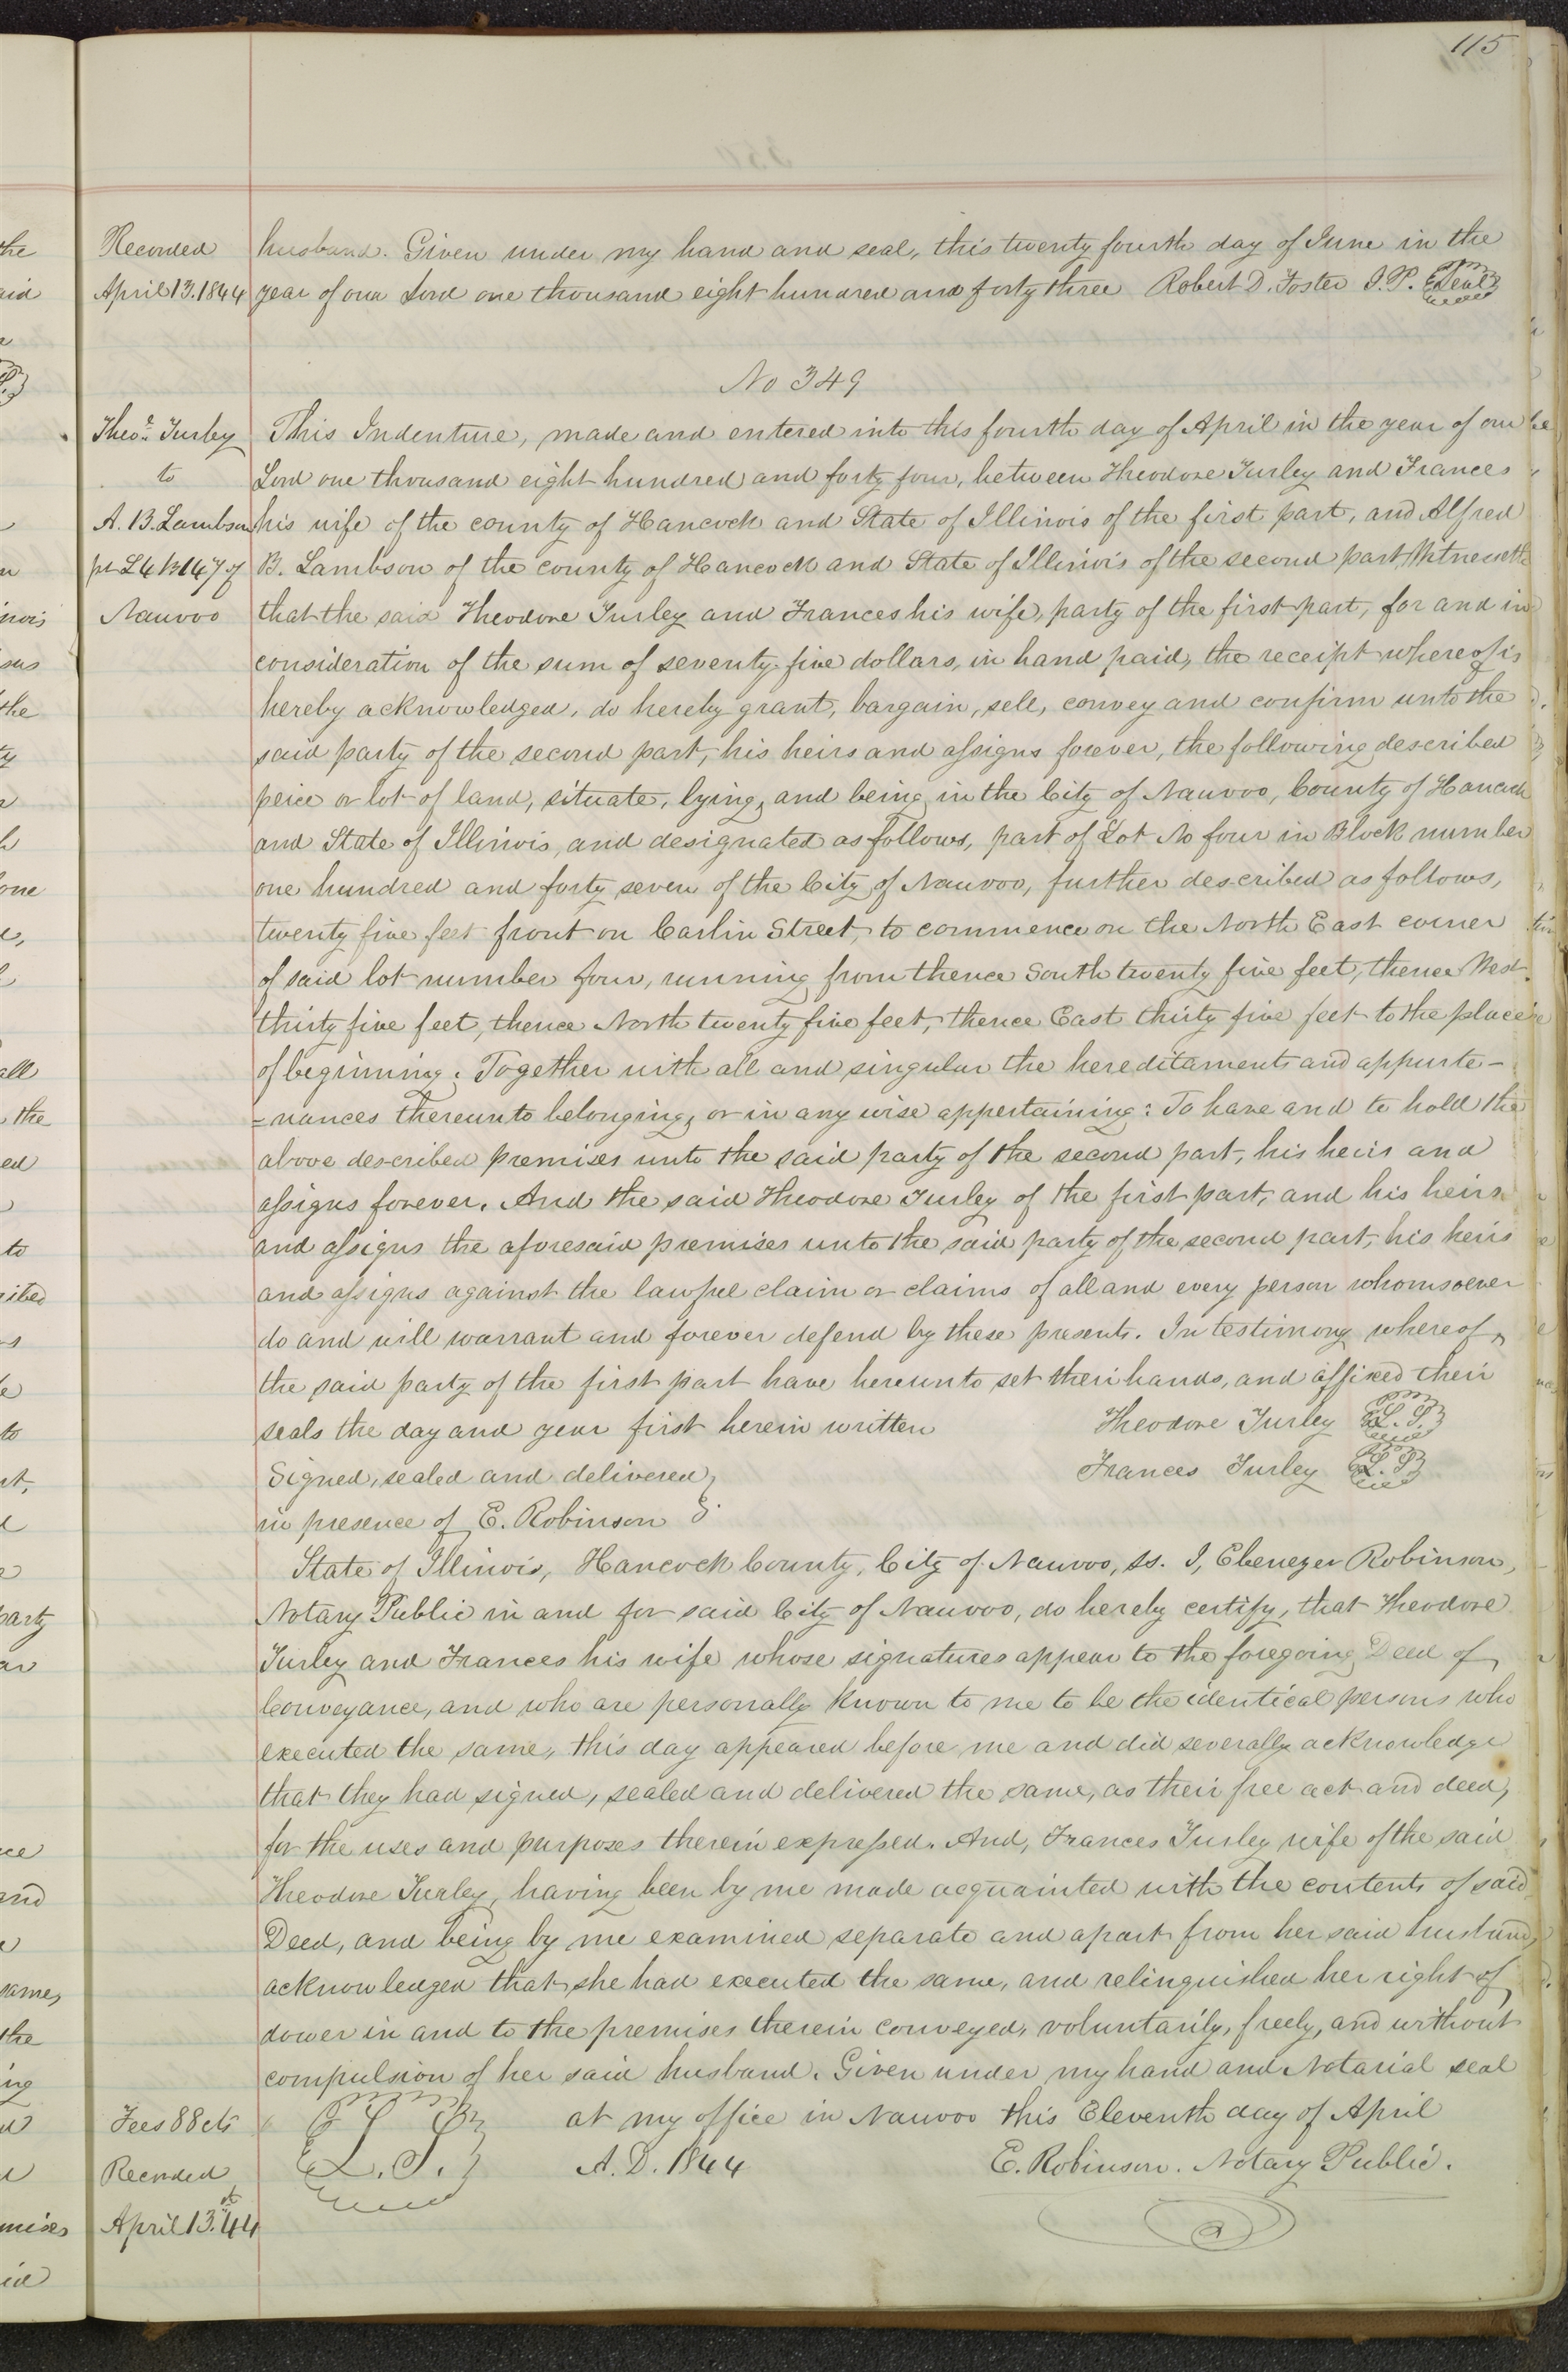 115
Recorded husband. Given under my hand and seal, this twenty fourth day of June in the
April 13. 1844 year of our Lord one thousand eight hundred and forty three Robert D. Foster J. P. Seal
No 349
Theo.e Turley This Indenture, made and entered into this fourth day of April in the year of our
to Lord one thousand eight hundred and forty four, between Theodore Turley and Frances
A. B. Lambson his wife of the county of Hancock and State of Illinois of the first part, and Alfred
pt L 4 B 147 of B. Lambson of the county of Hancock and State of Illinois of the second part, Witnesseth
Nauvoo that the said Theodore Turley and Frances his wife, party of the first part, for and in
consideration of the sum of seventy-five dollars, in hand paid, the receipt whereof is
hereby acknowledged, do hereby grant, bargain, sell, convey and confirm unto the
said party of the second part, his heirs and assigns forever, the following described
peice or lot of land, situate, lying, and being in the City of Nauvoo, County of Hancock
and State of Illinois, and designated as follows, part of Lot No four in Block number
one hundred and forty seven of the City of Nauvoo, further described as follows,
twenty five feet front on Carlin Street, to commence on the North East corner
of said lot number four, running from thence South twenty five feet, thence West
thirty five feet, thence North twenty five feet, thence East thirty five feet to the place
of beginning. Together with all and singular the hereditaments and appurte-
=nances thereunto belonging, or in any wise appertaining: To have and to hold the
above described premises unto the said party of the second part, his heirs and
assigns forever. And the said Theodore Turley of the first part, and his heirs
and assigns the aforesaid premises unto the said party of the second part, his heirs
and assigns against the lawful claim or claims of all and every person whomsoever
do and will warrant and forever defend by these presents. In testimony whereof,
the said party of the first part have hereunto set their hands, and affixed their
seals the day and year first herein written Theodore Turley L. S.
Signed, sealed and delivered, Frances Turley L. S.
in presence of E. Robinson
State of Illinois, Hancock County, City of Nauvoo, ss. I, Ebenezer Robinson,
Notary Public in and for said City of Nauvoo, do hereby certify, that Theodore
Turley and Frances his wife whose signatures appear to the foregoing Deed of
Conveyance, and who are personally known to me to be the identical persons who
executed the same, this day appeared before me and did severally acknowledge
that they had signed, sealed and delivered the same, as their free act and deed,
for the uses and purposes therein expressed. And, Frances Turley wife of the said
Theodore Turley, having been by me made acquainted with the contents of said
Deed, and being by me examined separate and apart from her said husband,
acknowledged that she had executed the same, and relinquished her right of
dower in and to the premises therein conveyed, voluntarily, freely, and without
compulsion of her said husband. Given under my hand and Notarial seal
Fees 88 cts L. S. at my office in Nauvoo this Eleventh day of April
Recorded A. D. 1844 E. Robinson. Notary Public.
April 13. 44